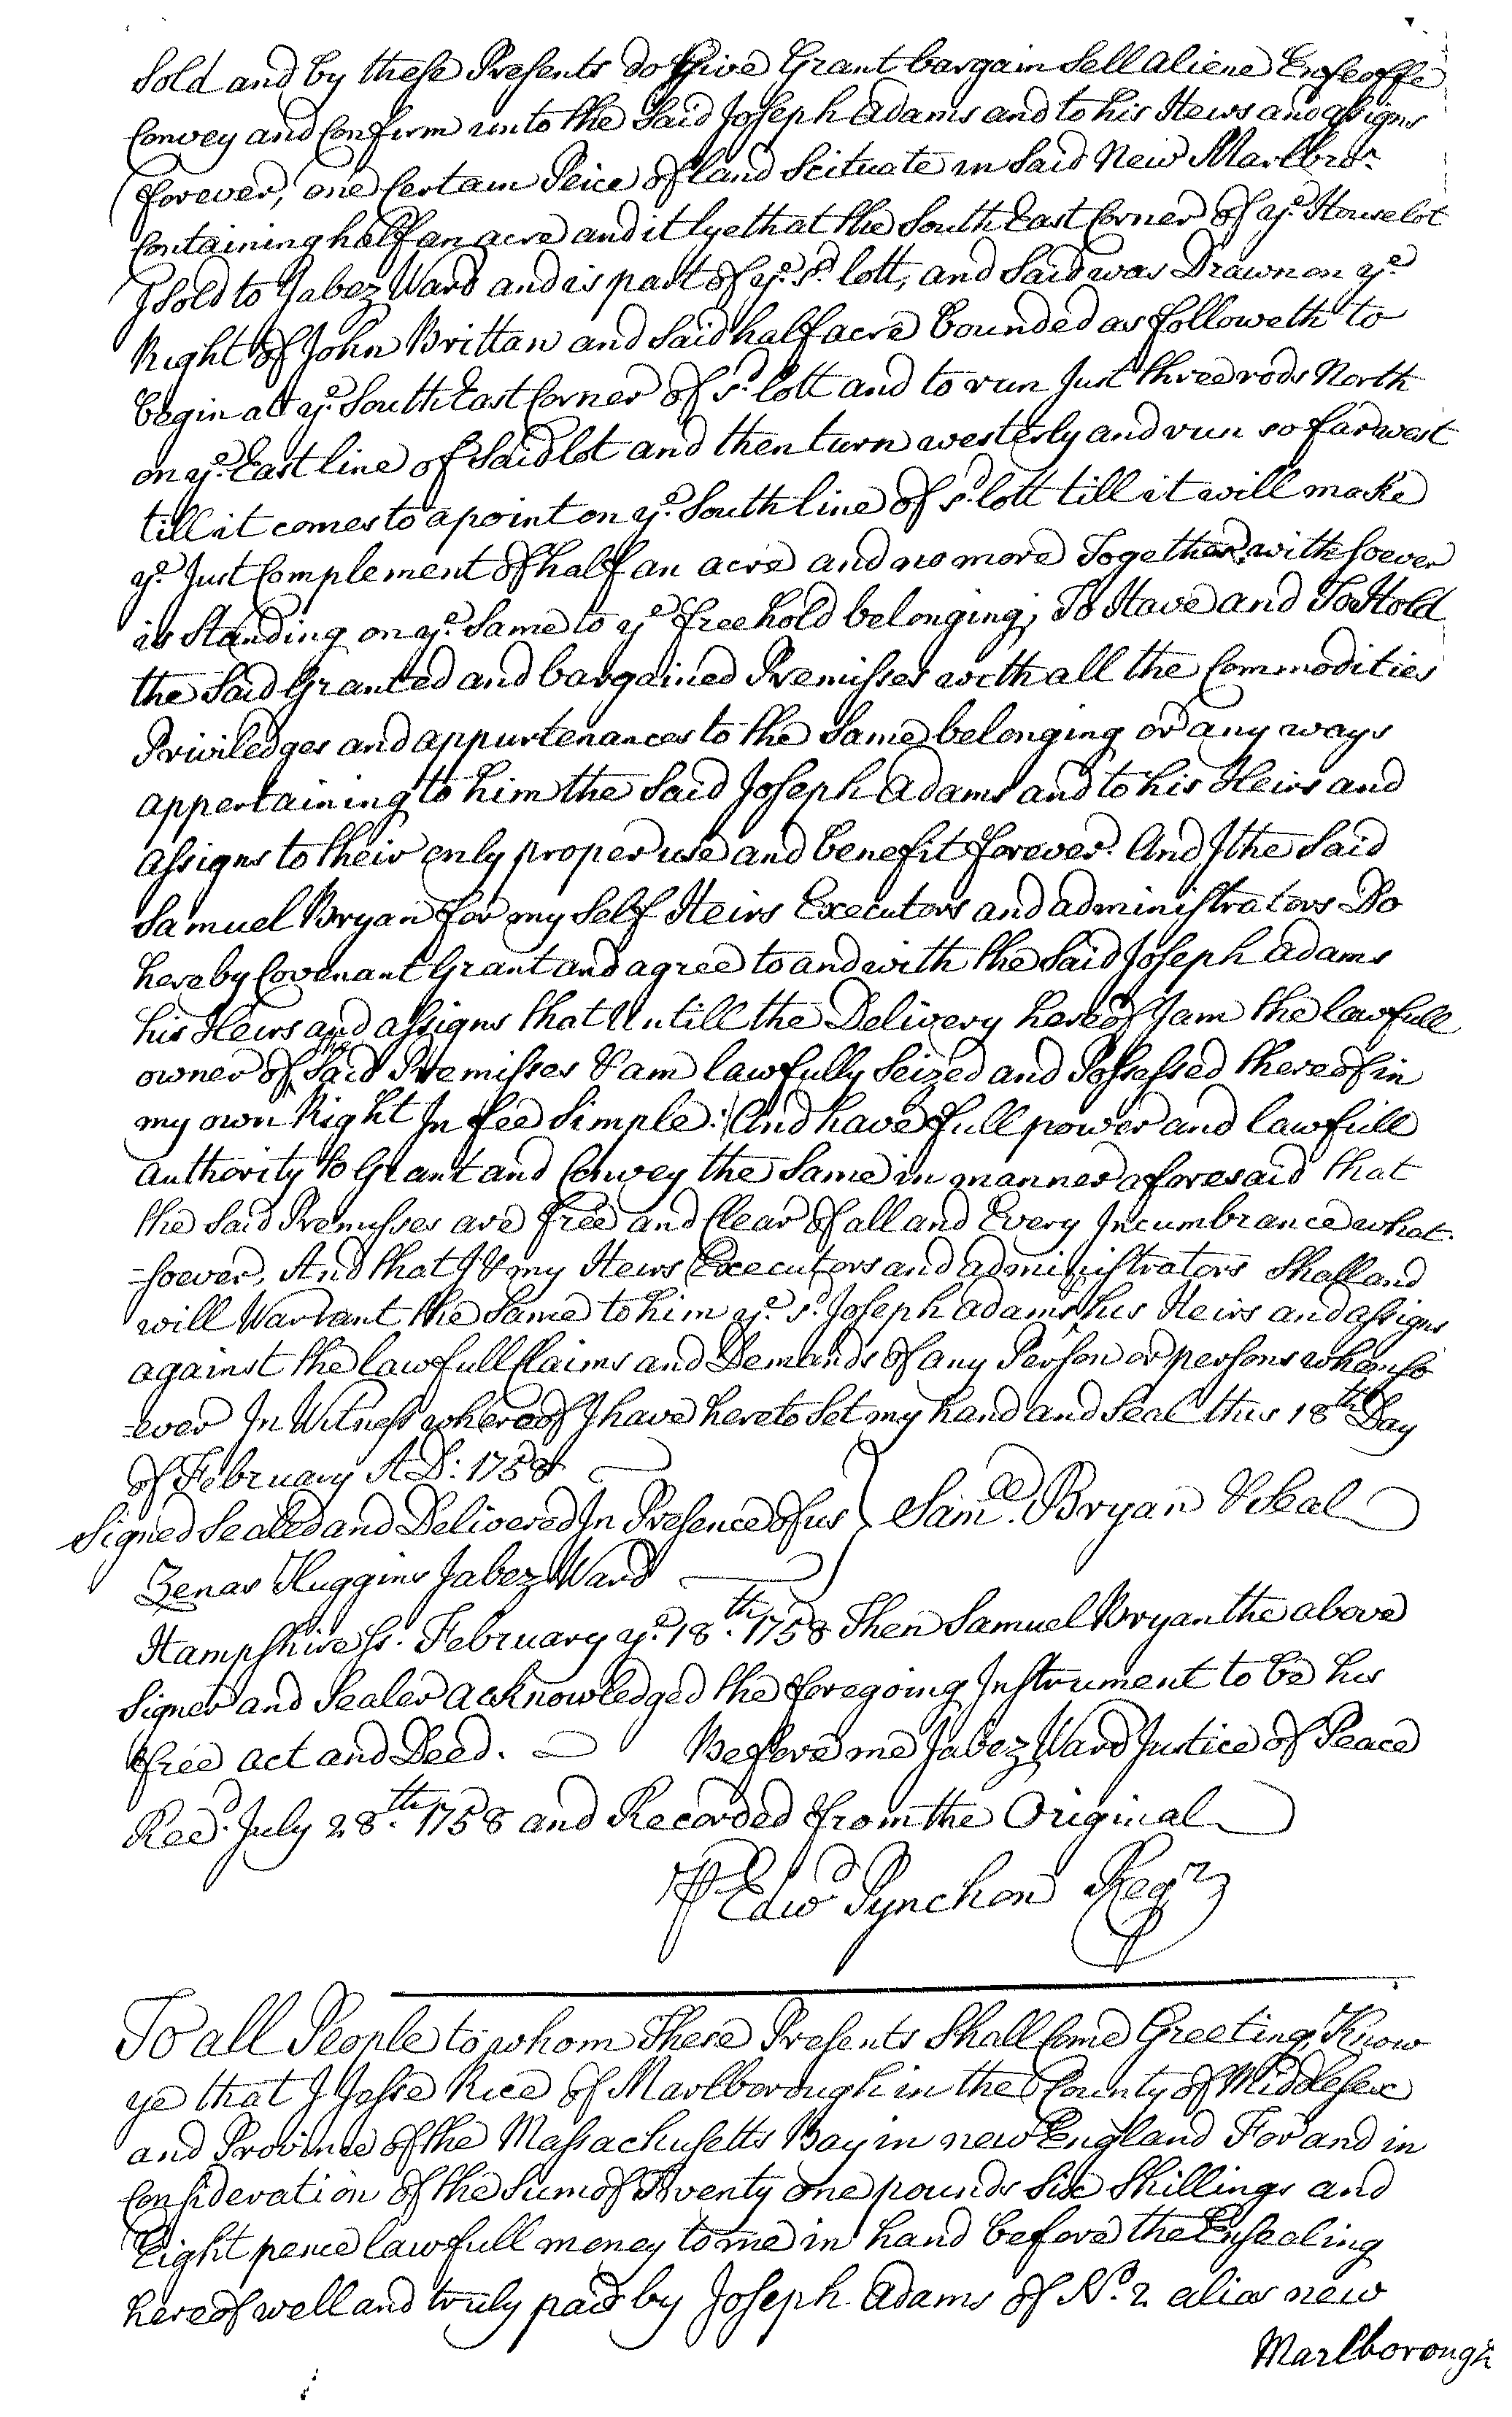 Sold and by these Presents do Give Grant bargain Sell aliene Enfeoffe
Convey and Confirm unto the Said Joseph Adams and to his Heirs and assigns
forever, one Certain Peice of land Scituate in Said New Marlbro.
Containing half an acre and it lyeth at the South East Corner of ye. House lot
I sold to Jabez Ward and is part of ye. sd. lott, and Said was Drawn on ye.
Right of John Brittan and Said half acre bounded as followeth to
begin at ye. South East Corner of sd. lott and to run Just three rods North
on ye. East line of Said lot and then turn westerly and run so far west
till it comes to a point on ye. South line of sd. lott till it will make
ye. Just Complement of half an acre and no more Together with soever
is Standing on ye. Same to ye freehold belonging, To Have and To Hold
the Said Granted and bargained Premisses with all the Commodities
Priviledges and appurtenances to the Same belonging or any ways
appertaining to him the Said Joseph Adams and to his Heirs and
assigns to their only proper use and benefit forever. And I the Said
Samuel Bryan for my Self Heirs Executors and administrators Do
hereby Covenant Grant and agree to and with the Said Joseph Adams
his Heirs and assigns that Untill the Delivery hereof I am the lawfull
owner of the Said Premisses & am lawfully Seized and Possessed thereof in
my own Right In fee Simple: And have full power and lawfull
authority to Grant and Convey the Same in manner aforesaid that
the Said Premisses are free and Clear of all and Every Incumbrance what-
=soever, And that I & my Heirs Executors and administrators Shall and
will Warrant the Same to him ye. sd. Joseph Adams his Heirs and assigns
against the lawfull Claims and Demands of any Person or persons whomso
=ever In Witness whereof I have hereto Set my hand and Seal this 18th. Day
of February A D: 1758
Signed Sealed and Delivered In Presence of us } Saml. Bryan & Seal
Zenas Huggins Jabez Ward
Hampshire Ss. February ye. 18th. 1758 Then Samuel Bryan the above
Signer and Sealer acknowledged the foregoing Instrument to be his
free act and Deed. Before me Jabez Ward Justice of Peace
Recd. July 28th. 1758 and Recorded from the Original
P Edwd Pynchon Regr
To all People to whom These Presents Shall Come Greeting, Know
ye that I Jesse Rice of Marlborough in the County of Middlesex
and Province of the Massachusetts Bay in new England For and in
Consideration of the Sum of Twenty one pounds Six Shillings and
Eight pence lawfull money to me in hand before the Ensealing
hereof well and truly paid by Joseph Adams of No. 2 alias new
Marlborough